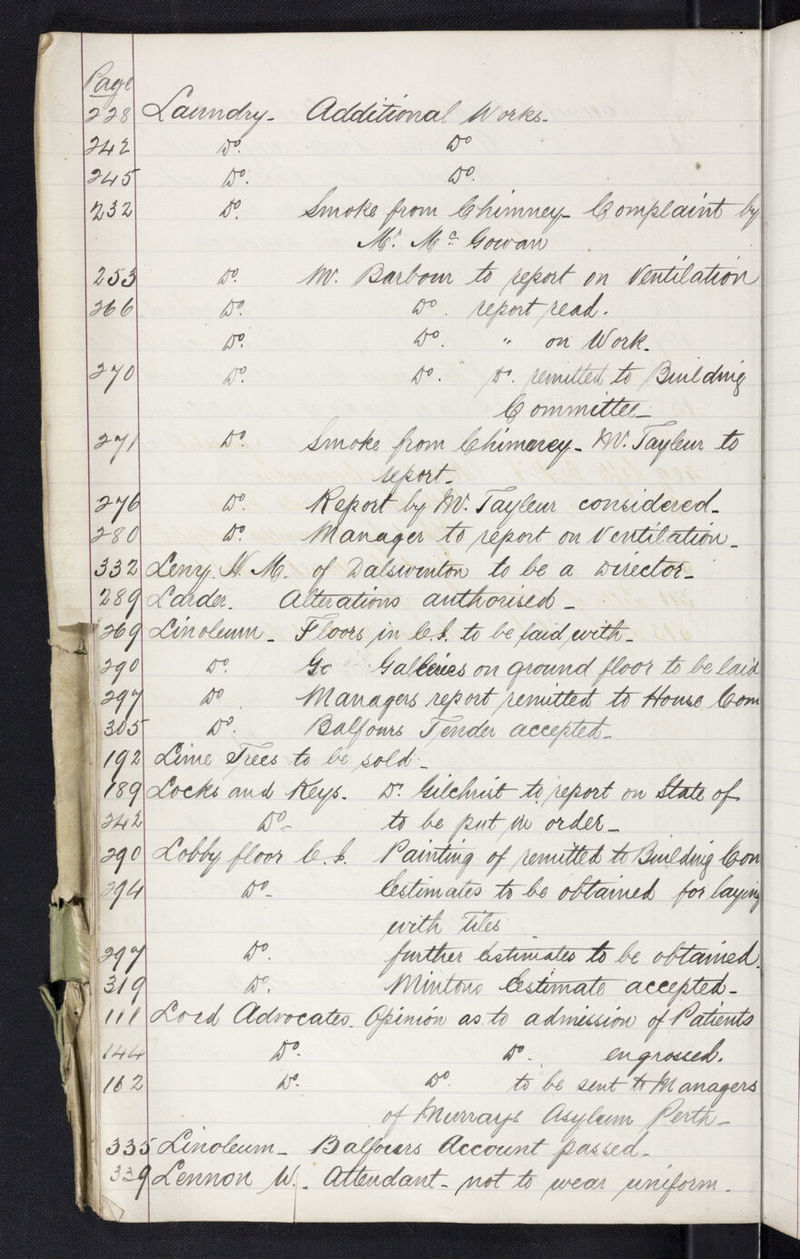 Page
228 Laundry - Additional Works -
242 Do. Do
245 Do. Do.
232 Do. Smoke from Chimney - Complaint by
Mr. Mc Gowan
253 Do. Mr. Barbour to report on Ventilation
266 Do. Do. report read.
Do. Do. " on Work -
270 Do. Do. Do. remitted to Building
Committee -
271 Do. Smoke from Chimney - Mr. Tayleur to
report -
276 Do. Report by Mr. Tayleur considered -
280 Do. Manager to report on Ventilation -
332 Leny H. M. of Dalswinton to be a Director -
289 Larder. Alterations authorised -
269 Linoleum - Floors in C.I. to be laid with -
290 Do. Galleries on ground floor to be laid
297 Do. Managers report remitted to House Com
305 Do. Balfours Tender accepted -
192 Lime Trees to be sold -
189 Locks and Keys - Dr. Gilchrist to report on State of
242 Do - to be put in order -
290 Lobby floor C.I. Painting of remitted to Building Com
294 Do - Estimates to be obtained for laying
with tiles
297 Do. further Estimates to be obtained.
319 Do. Mintons Estimate accepted -
111 Lord Advocates. Opinion as to admission of Patients
144 Do. Do. engrossed.
162 Do. Do to be sent to Managers
of Murrays Asylum Perth -
335 Linoleum - Balfours Account passed -
339 Lennon W. - Attendant - not to wear uniform -